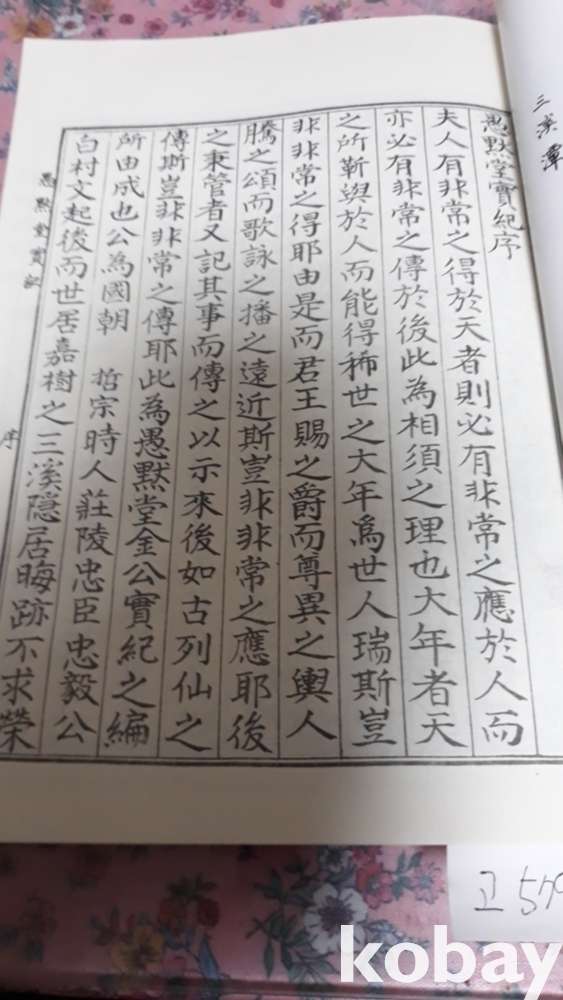 三溪潭
愚默堂實紀序
夫人有非常之得於天者則必有非常之應於人而
亦必有非常之傳於後此為相須之理也大年者天
之所靳與於人而能得稀世之大年爲世人瑞斯豈
非非常之得耶由是而君王賜之爵而尊異之輿人
騰之頌而歌詠之播之遠近斯豈非非常之應耶後
之秉管者又記其事而傳之以示來後如古列仙之
傳斯豈非非常之傳耶此為愚默堂金公實紀之編
所由成也公為國朝 哲宗時人莊陵忠臣忠毅公
白村文起後而世居嘉樹之三溪隱居晦跡不求榮
愚默堂實記 序
고 579
kobay